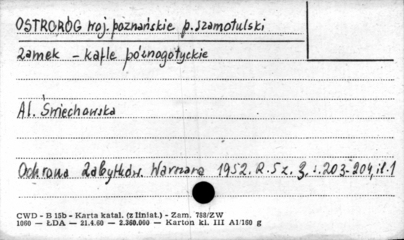 OSTRORÓG woj. poznańskie p. szamotulski
zamek - kafle późnogotyckie
Al. Śmiechowska
Ochrona Zabytków. Warszawa 1952. R. 5 z. 3, s. 203-204, il. 1
CWD - B 15b - Karta katal. (z liniat.) - Zam. 788/ZW
1060 — ŁDA — 21.4.60 — 2.360.000 — Karton kl. III A1/160 g